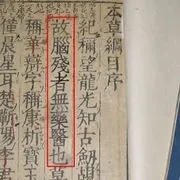 本草綱目序
紀稱望龍光知古劍覘
故腦殘者無藥醫也
稱華辯字稱康析寶玉
僅晨星耳楚蘄陽李君